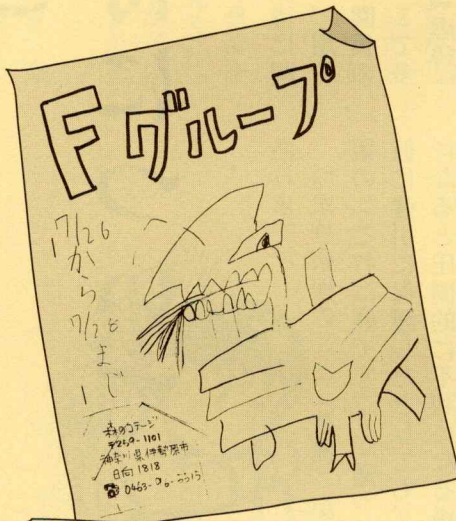 Fグループ
7/26
から
7/28
まで
森のコテージ
〒259-1101
神奈川県伊勢原市
日向1818
☎ 0463-